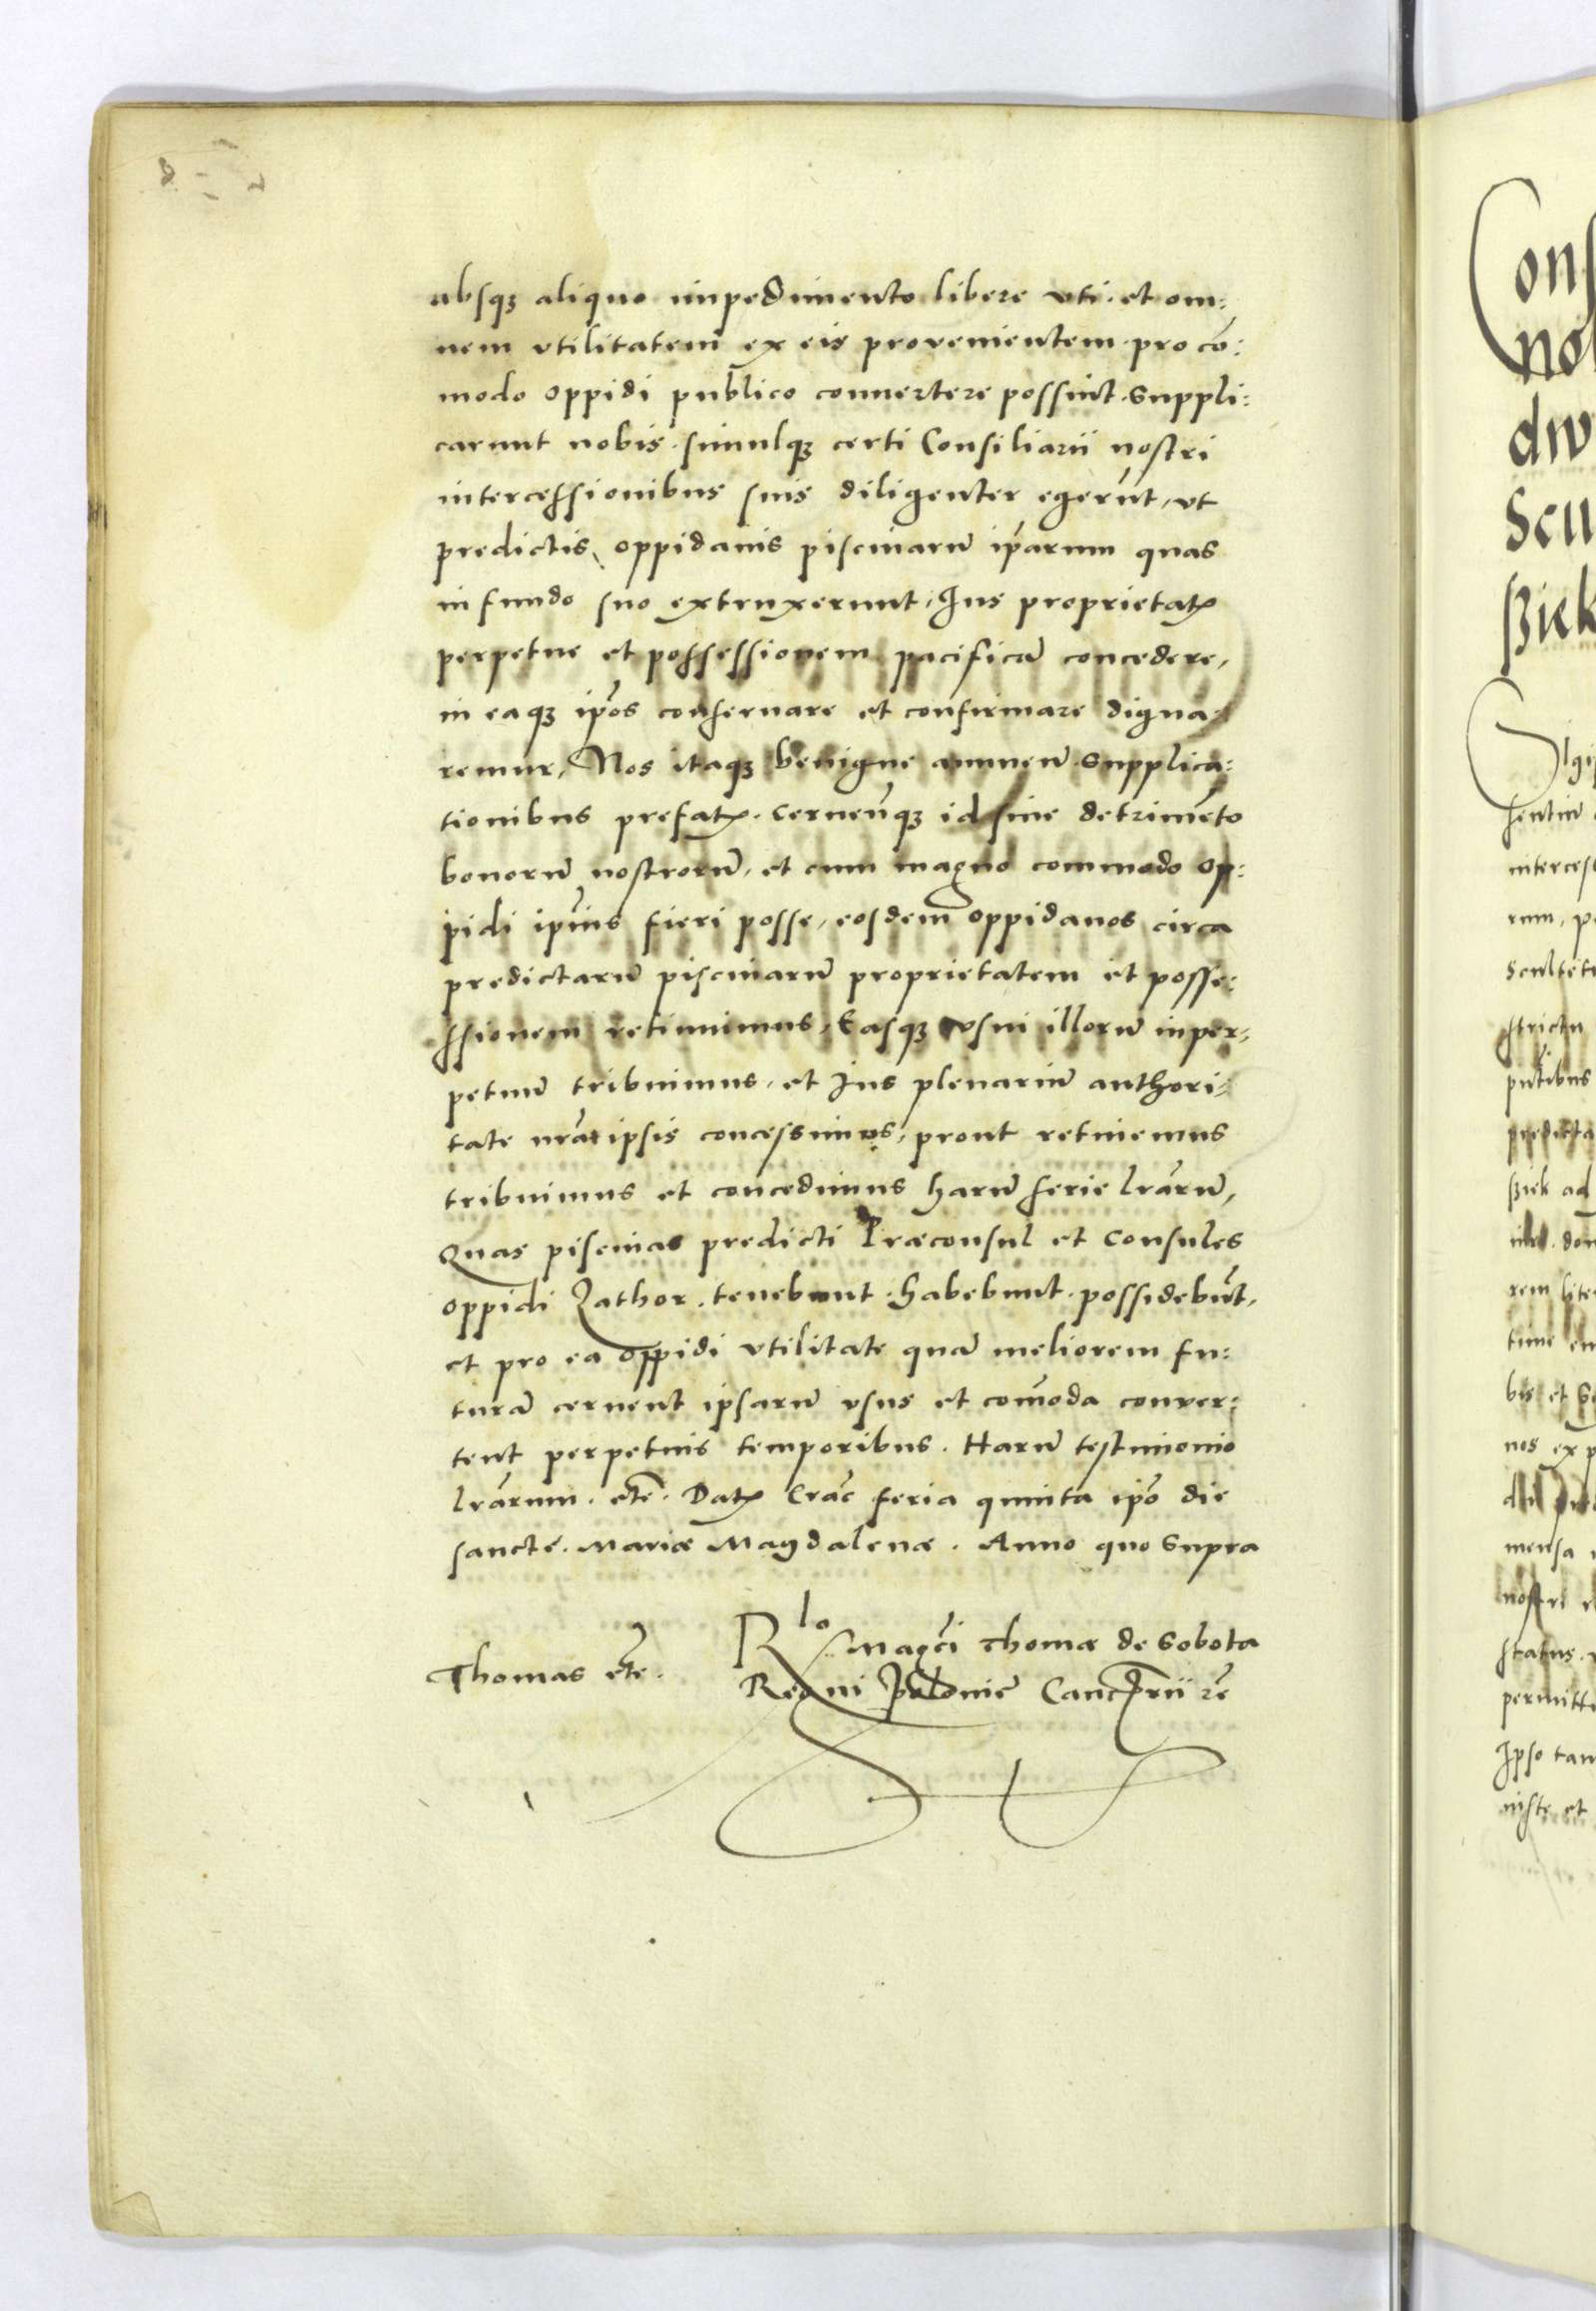 absqꝫ aliquo impedimento libere vti. et om:
nem vtilitatem ex eis prouenientem pro cō:
modo oppidi publico conuertere possint. Suppli:
carunt nobis. simulqꝫ certi Consiliarii nostri
intercessionibus suis diligenter egerūt, vt
predictis, oppidanis piscinarū ip̄arum quas
in fundo suo extruxerunt, Ius proprietatꝭ
perpetue et possessionem pacificā concedere,
in eaqꝫ ip̄os conseruare et confirmare digna:
remur, Nos itaqꝫ benigne annuen̄ supplica:
tionibus prefatꝭ. Cernen̄qꝫ id sine detrimēto
bonorū nostrorū, et cum magno commodo op:
pidi ip̄ius fieri posse, eosdem oppidanos circa
predictarū piscinarū proprietatem et posse:
ssionem retinuimus, Easqꝫ vsui illorū inper:
petuū tribuimus, et Ius plenariū authori:
tate nr̄a ipsis concessimus, prout retinemus
tribuimus et concedimus harū serie lr̄arū,
Quas piscinas predicti Præconsul et Consules
oppidi Zathor. tenebunt. habebunt. possidebūt,
et pro ea oppidi vtilitate quā meliorem fu:
turā cernent ipsarū vsus et com̄oda conuer:
tent perpetuis temporibus. Harū testimonio
lr̄arum. etc̄. Datꝭ Crac̄ feria quinta ip̄o die
sancte. Mariæ Magdalenæ. Anno quo supra
Thomas etc̄.
Rlo Magc̄i Thomæ de Sobota
Regni Polonie Canc̄rii rc̄
ons
no
div
Scu
ßiek
sentiū
interces
rum, p
Scultet
strictu
predicta
ßiek ad
rem lite
tunc en
bis et S
nos ex p
mensa
nostri
status.
permitte
Ipso tan
niste et